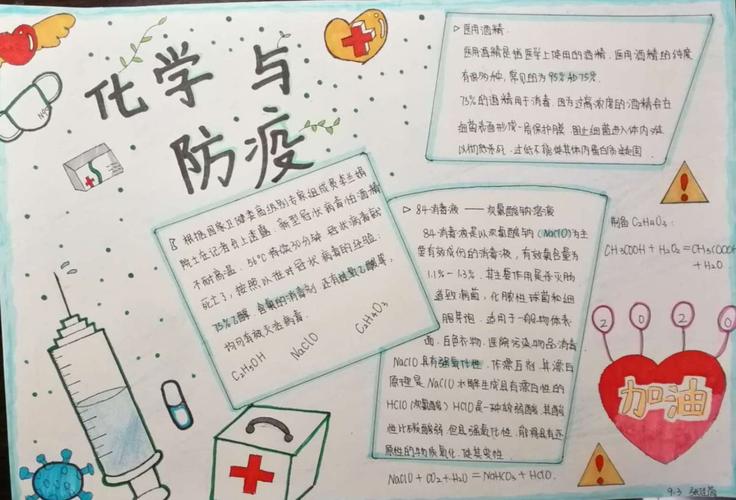 化学与
防疫
N95
▷ 医用酒精.
医用酒精是指医学上使用的酒精.医用酒精的纯度
有很多种,常见的为95%和75%.
75%的酒精用于消毒.因为过高浓度的酒精会在
细菌表面形成一层保护膜.阻止细菌进入体内,难
以彻底杀死.过低不能使其体内蛋白质凝固.
根据国家卫健委高级别专家组成员李兰娟
院士在记者会上透露.新型冠状病毒怕酒精
不耐高温.56℃持续30分钟.冠状病毒就
死亡了,按照以往对冠状病毒的经验:
75%乙醇.含氯的消毒剂.还有过氧乙酸等,
均可有效灭活病毒.
C₂H₅OH NaClO C₂H₄O₃
▷ 84消毒液 —— 次氯酸钠溶液
84消毒液是以次氯酸钠(NaClO)为主
要有效成份的消毒液,有效氯含量为
1.1%-1.3%.其主要作用是杀灭肠
道致病菌,化脓性球菌和细
菌芽孢.适用于一般物体表
面.白色衣物.医院污染物品消毒
NaClO具有强氧化性.作漂白剂.其漂白
原理是NaClO水解生成具有漂白性的
HClO(次氯酸)HClO是一种较弱酸.其酸
性比碳酸弱.但具强氧化性.能将具有还
原性的物质氧化.使其变性.
NaClO+CO₂+H₂O=NaHCO₃+HClO.
制备C₂H₄O₃:
CH₃COOH+H₂O₂=CH₃COOOH
+H₂O
2 0 2 0
加油
9.3